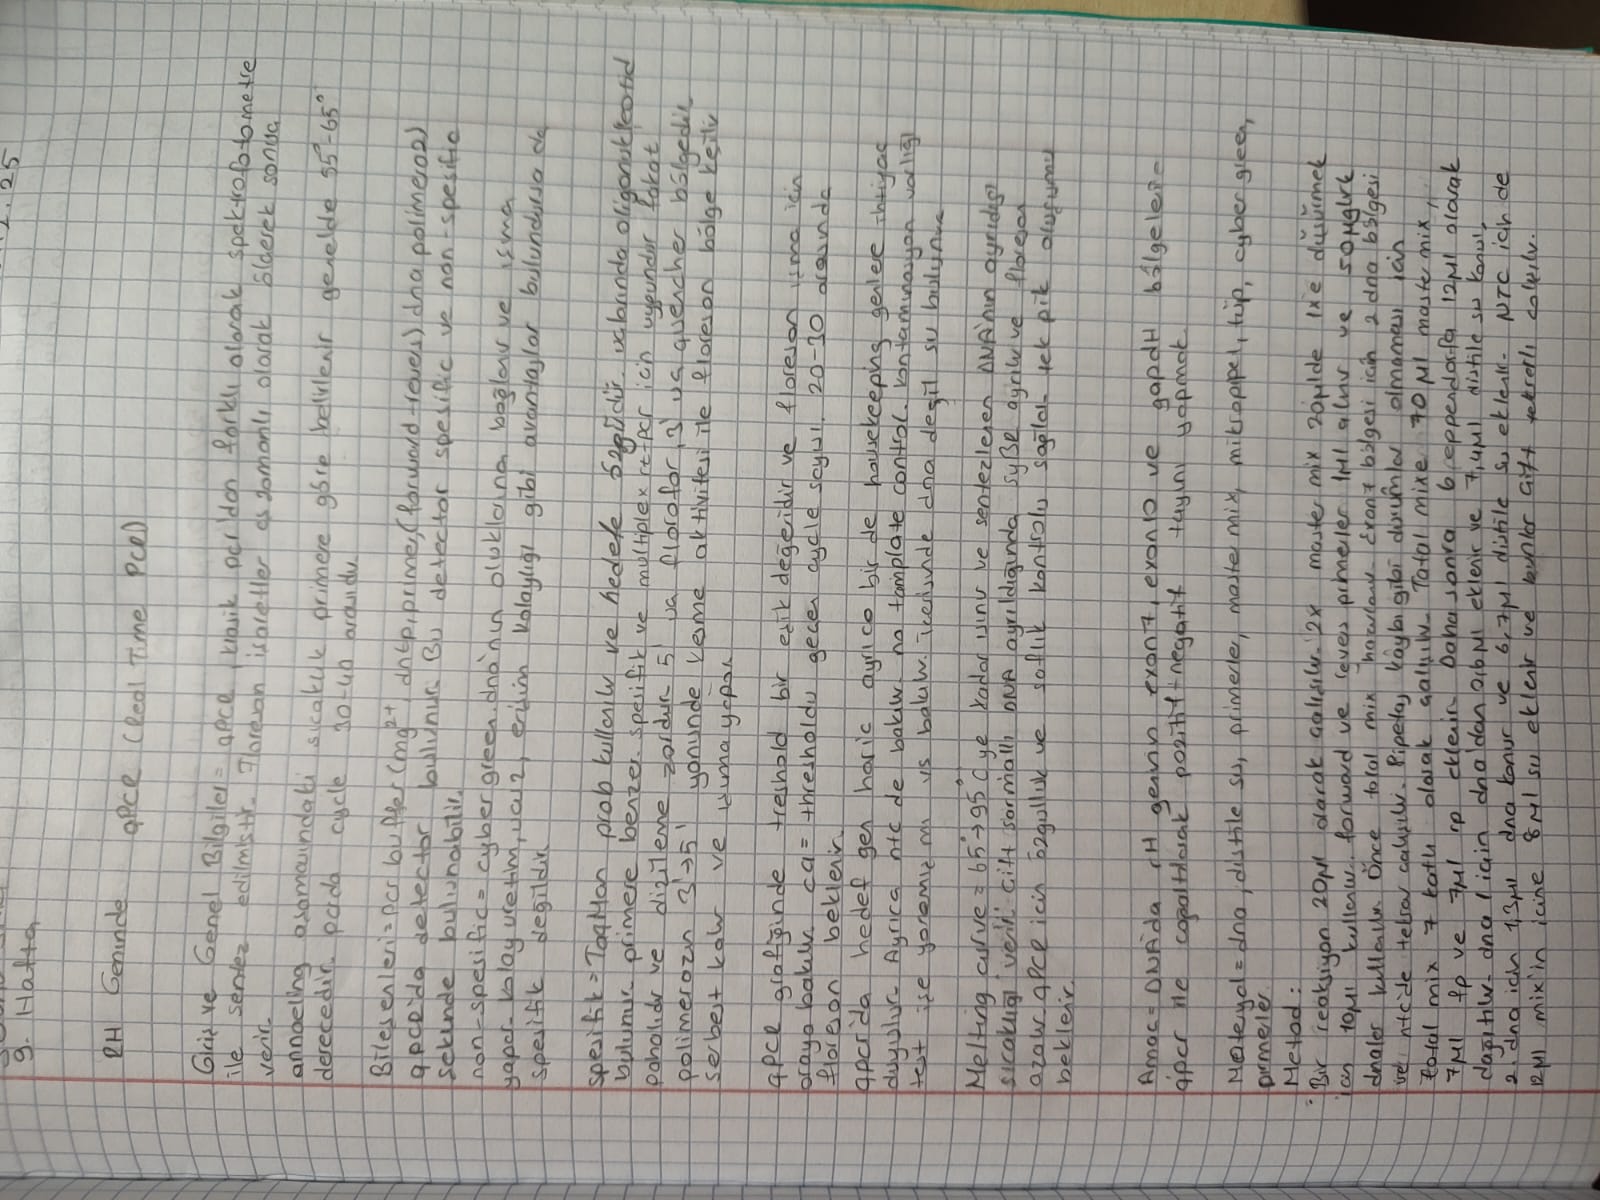 9. Hafta
RH Geninde qPCR (Real Time PCR)
Giriş ve Genel Bilgiler= qPCR, klasik pcr'dan farklı olarak spektrofotometre
ile sentez edilmiştir. Floresan işaretler eş zamanlı olarak ölçerek sonuç
verir.
annaeling aşamasındaki sıcaklık primere göre belirlenir genelde 55°-65°
derecedir. pcrda cycle 30-40 arasıdır.
Bileşenleri= pcr buffer (mg2+, dntp, primer, (forwund-revers) dna polimeraz)
qpcrda detector bulunur. Bu detector spesific ve non-spesific
şekilde bulunabilir.
non-spesific= cyber green dna'nın oluklarına bağlanır ve ışıma
yapar. kolay üretim, ucuz, erişim kolaylığı gibi avantajlar bulundursa da
spesifik değildir.
spesifik= TaqMan prob kullanılır ve hedefe özgüdür. uçlarında oligonükleotid
bulunur primere benzer. spesifik ve multiplex rtpcr için uygundur fakat
pahalıdır ve dizileme zordur. 5' ucu florofor, 3' ucu quencher bölgedir.
polimerazın 3'→5' yönünde kesme aktivitesi ile floresan bölge kesilir
serbest kalır ve ışıma yapar.
qPCR grafiğinde treshold bir eşik değeridir ve floresan ışıma için
oraya bakılır. cq= thresholdu geçen cycle sayısı. 20-30 arasında
floresan beklenir.
qpcrda hedef gen hariç ayrıca bir de housekeeping genlere ihtiyaç
duyulur. Ayrıca ntc de bakılır. no template control. kontaminasyon varlığı
test ise yoremiz mı vs bakılır. içerisinde dna değil su bulunur.
Melting curve= 65°→95°C ye kadar ısınır ve sentezlenen DNA'nın ayrıldığı
sıcaklığı verir. Çift sarmallı DNA ayrıldığında SYBR ayrılır ve floresan
azalır. qPCR için özgüllük ve saflık kontrolü sağlar. tek pik oluşumu
beklenir.
Amaç= DNA'da rH genin exon7, exon10 ve gapdH bölgelerine
qpcr ile çoğaltılarak pozitif-negatif tayini yapmak.
Materyal= dna, distile su, primerler, master mix, mikropipet, tüp, cyber green,
primerler
Metod:
Bir reaksiyon 20µl olarak çalışılır. 2x master mix 20µlde 1xe düşürmek
için 10µl kullanılır. forward ve revers primerler 1µl alınır ve 50ng'luk
dnalar kullanılır. Önce total mix hazırlanır. Exon7 bölgesi için 2 dna bölgesi
ve ntcide tekrar çalışılır. Pipetaj kaybı gibi durumlar olmaması için
total mix 7 katlı olarak çalışılır. Total mixe 70 µl master mix,
7µl fp ve 7µl rp eklenir. Daha sonra 6 eppendorfa 12µl olarak
dağıtılır. dna 1 için dna'dan 0,6µl eklenir ve 7,4µl distile su konur,
2. dna için 1,3µl dna konur ve 6,7µl distile su eklenir. NTC için de
12µl mix'in içine 8µl su eklenir ve bunlar çift tekrarlı çalışılır.